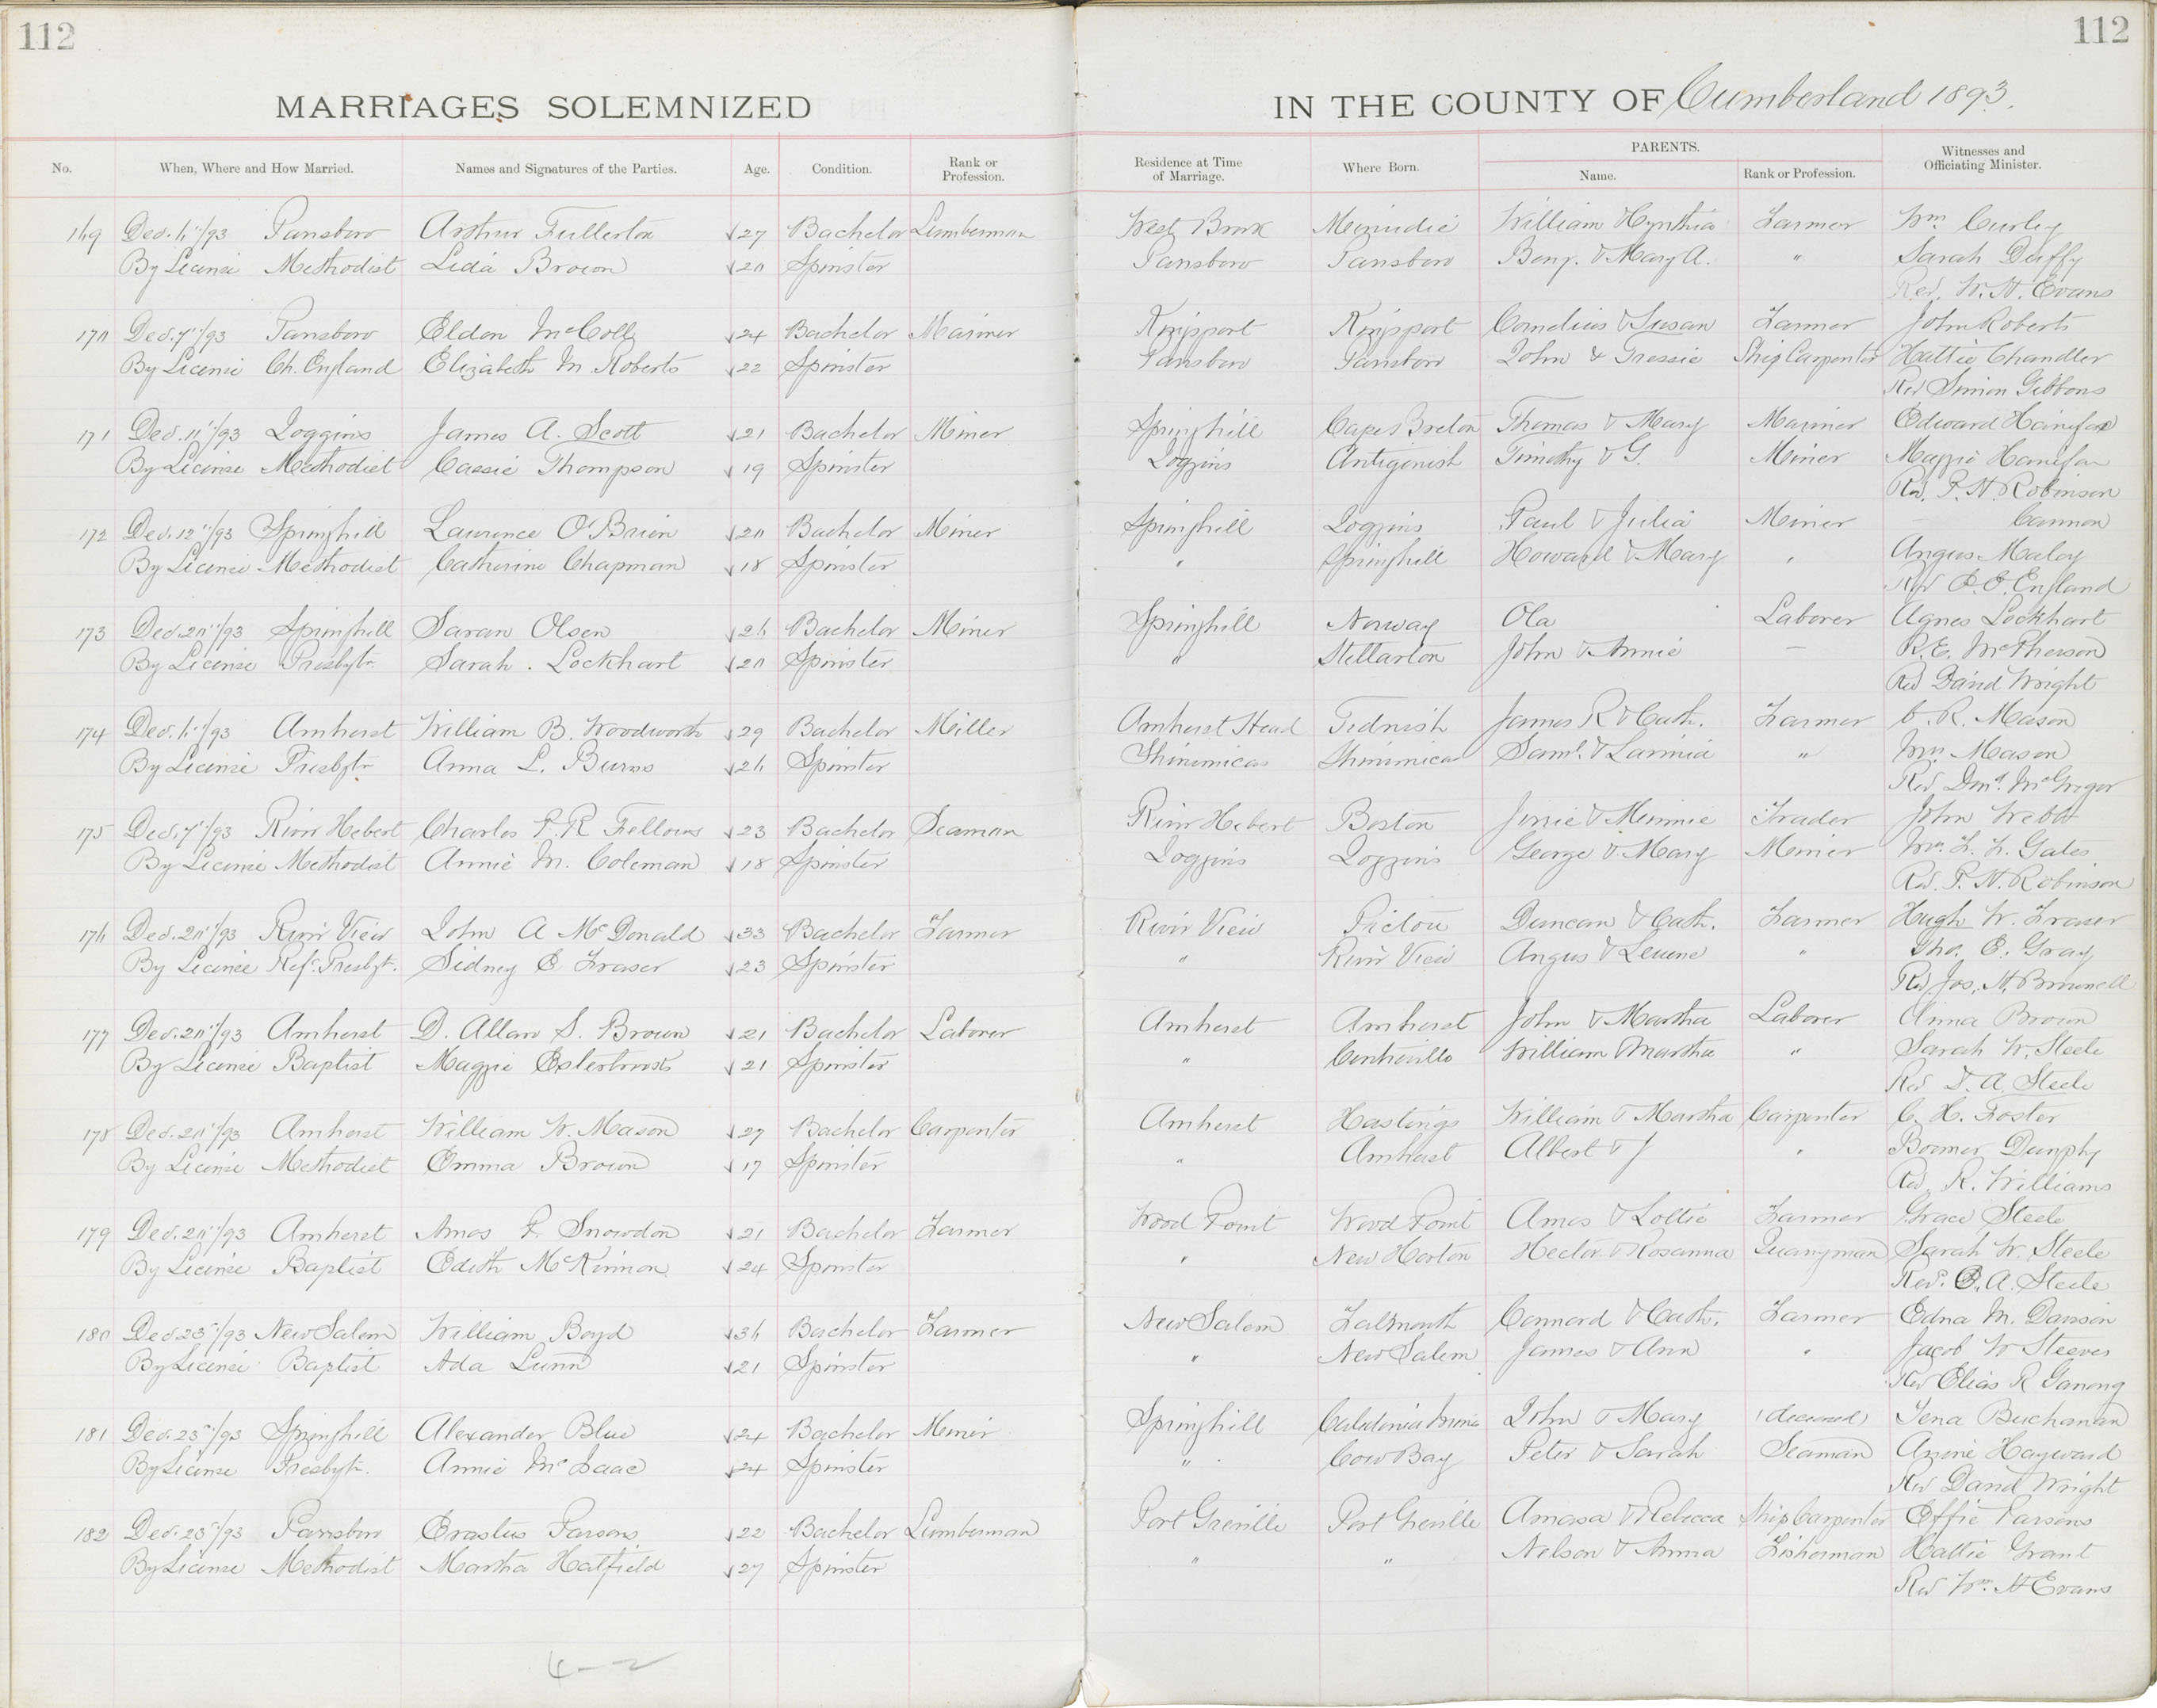 112
112
MARRIAGES SOLEMNIZED IN THE COUNTY OF Cumberland 1893.
No. When, Where and How Married. Names and Signatures of the Parties. Age. Condition. Rank or Profession. Residence at Time of Marriage. Where Born. PARENTS. Name. Rank or Profession. Witnesses and Officiating Minister.
169 Dec. 6"/93 Parrsboro Arthur Fullerton 27 Bachelor Lumberman West Brook Minudie William & Cynthia Farmer Wm Curley
By License Methodist Lida Brown 20 Spinster Parrsboro Parrsboro Benj. & Mary A. " Sarah Duffy
Rev. W. H. Evans
170 Dec. 7"/93 Parrsboro Eldon McColly 24 Bachelor Mariner Kingsport Kingsport Cornelius & Susan Farmer John Roberts
By License Ch. England Elizabeth M. Roberts 22 Spinster Parrsboro Parrsboro John & Tressie Ship Carpenter Hattie Chandler
Rev Simon Gibbons
171 Dec. 11"/93 Joggins James A. Scott 21 Bachelor Miner Springhill Cape Breton Thomas & Mary Mariner Edward Hanifan
By License Methodist Cassie Thompson 19 Spinster Joggins Antigonish Timothy & G. Miner Maggie Hanifan
Rev. P. H. Robinson
172 Dec. 12"/93 Springhill Lawrence O'Brien 20 Bachelor Miner Springhill Joggins Paul & Julia Miner Cannon
By License Methodist Catherine Chapman 18 Spinster " Springhill Howard & Mary " Angus Maloy
Rev E. E. England
173 Dec. 20"/93 Springhill Saran Olsen 26 Bachelor Miner Springhill Norway Ola Laborer Agnes Lockhart
By License Presbytr. Sarah . Lockhart 20 Spinster " Stellarton John & Annie — R. E. McPherson
Rev David Wright
174 Dec. 6"/93 Amherst William B. Woodworth 29 Bachelor Miller Amherst Head Tidnish James R & Cath. Farmer C. R. Mason
By License Presbytr Anna L. Burns 26 Spinster Shinimicas Shinimicas Saml. & Lavinia " Mrs. Mason
Rev. McGregor
175 Dec. 7"/93 River Hebert Charles P. R Fellows 23 Bachelor Seaman River Hebert Boston & Minnie Trader John Webb
By License Methodist Annie M. Coleman 18 Spinster Joggins Joggins George & Mary Miner Gates
Rev. P. H. Robinson
176 Dec. 20"/93 River View John A McDonald 33 Bachelor Farmer River View Pictou Duncan & Cath. Farmer Hugh W. Fraser
By License Ref. Presbyt. Sidney E Fraser 23 Spinster " River View Angus & " Tho. E. Gray
Rev Jos. H. Brownell
177 Dec. 20"/93 Amherst D. Allan S. Brown 21 Bachelor Laborer Amherst Amherst John & Martha Laborer Anna Brown
By License Baptist Maggie Esterbrooks 21 Spinster " Centreville William & Martha " Sarah W. Steele
Rev D. A. Steele
178 Dec. 20"/93 Amherst William W. Mason 27 Bachelor Carpenter Amherst Hastings William & Martha Carpenter C. H. Foster
By License Methodist Emma Brown 17 Spinster " Amherst Albert & J " Dunphy
Rev. R. Williams
179 Dec. 20"/93 Amherst Amos F. Snowdon 21 Bachelor Farmer Wood Point Wood Point Amos & Lottie Farmer Grace Steele
By License Baptist Edith McKinnon 24 Spinster " New Horton Hector & Rosanna Quarryman Sarah W. Steele
Rev. D. A. Steele
180 Dec 25"/93 New Salem William Boyd 36 Bachelor Farmer New Salem Falmouth Connard & Cath. Farmer Edna M. Dawson
By License Baptist Ada Lunn 21 Spinster " New Salem James & Ann " Jacob W Steeves
Rev Elias R Ganong
181 Dec. 25"/93 Springhill Alexander Blue 24 Bachelor Miner Springhill Caledonia Mines John & Mary (deceased) Tena Buchanan
By License Presbytr. Annie McIsaac 24 Spinster " Cow Bay Peter & Sarah Seaman Annie Hayward
Rev David Wright
182 Dec. 25"/93 Parrsboro Erastus Parsons 22 Bachelor Lumberman Port Greville Port Greville Amasa & Rebecca Ship Carpenter Effie Parsons
By License Methodist Martha Hatfield 27 Spinster " " Nelson & Anna Fisherman Hattie Grant
Rev Wm. H Evans